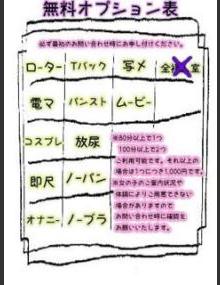 無料オプション表
必ず最初のお問い合わせ時にお申し付けください。
ローター Tバック 写メ
電マ パンスト ムービー
コスプレ 放尿
即尺 ノーパン
オナニー ノーブラ
※80分以上で1つ
100分以上で2つ
ご利用可能です。それ以上の
場合は1つにつき1,000円です。
※女の子のご案内状況や
体調によりご用意できない
場合がありますので
お問い合わせ時に確認を
お願いいたします。